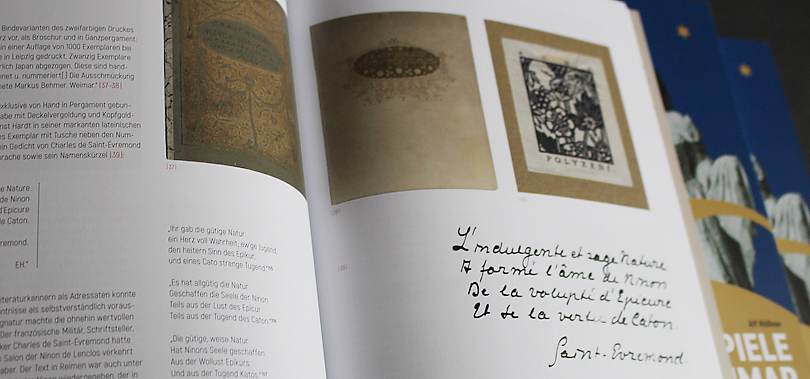 Bindevarianten des zweifarbigen Druckes
rz vor, als Broschur und in Ganzpergament.
in einer Auflage von 1000 Exemplaren bei
e in Leipzig gedruckt. Zwanzig Exemplare
rlich Japan abgezogen. Diese sind hand-
hnet u. nummeriert[.] Die Ausschmückung
nete Markus Behmer. Weimar." [37-38]
exklusive von Hand in Pergament gebun-
abe mit Deckelvergoldung und Kopfgold-
nst Hardt in seiner markanten lateinischen
es Exemplar mit Tusche neben den Num-
in Gedicht von Charles de Saint-Évremond
prache sowie sein Namenskürzel [39]:
e Nature
de Ninon
d'Epicure
de Caton.
remond.
EH."
iteraturkennern als Adressaten konnte
ntnisse als selbstverständlich voraus-
gnatur machte die ohnehin wertvollen
Der französische Militär, Schriftsteller,
ker Charles de Saint-Évremond hatte
Salon der Ninon de Lenclos verkehrt
aber. Der Text in Reimen war auch unter
der Ninon wiedergegeben, der in
[37]
„Ihr gab die gütige Natur
ein Herz voll Wahrheit, ew'ge Jugend,
den heitern Sinn des Epikur,
und eines Cato strange Tugend."
„Es hat allgütig die Natur
Geschaffen die Seele der Ninon
Teils aus der Lust des Epicur
Teils aus der Tugend des Caton."
„Die gütige, weise Natur
Hat Ninons Seele geschaffen
Aus der Wollust Epikurs
Und aus der Tugend Katos."
POLYXENE
[38]
[39]
L'indulgente et sage Nature
A formé l'âme de Ninon
De la volupté d'Epicure
Et de la vertu de Caton.
Saint-Evremond.
PIELE
MAR